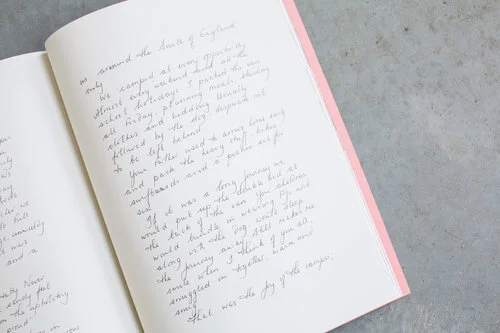 usually
was
and a
Never
sandy feet
the upholstery
around the South of England
only
We camped at every opportunity
Almost every weekend and all the
school holidays. I packed the van
all Friday, planning meals,
clothes and bedding. Usually
followed by the dog desperate not
to be left behind.
Your Father used to come home early
and pack the heavy stuff, bikes
surfboards and a
sun.
If it was a long journey we
would put up the double bed at
the back of the van. You children
would huddle in sleeping bags and
along with the dog, would sleep
the journey away. It still makes me
smile when I think of you all
snuggled in together, warm and
snug.
That was the joy of the camper.